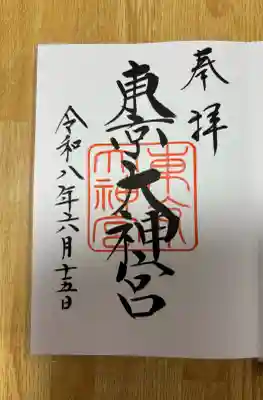 奉拝
東京大神宮
東京大神宮
令和八年六月十五日